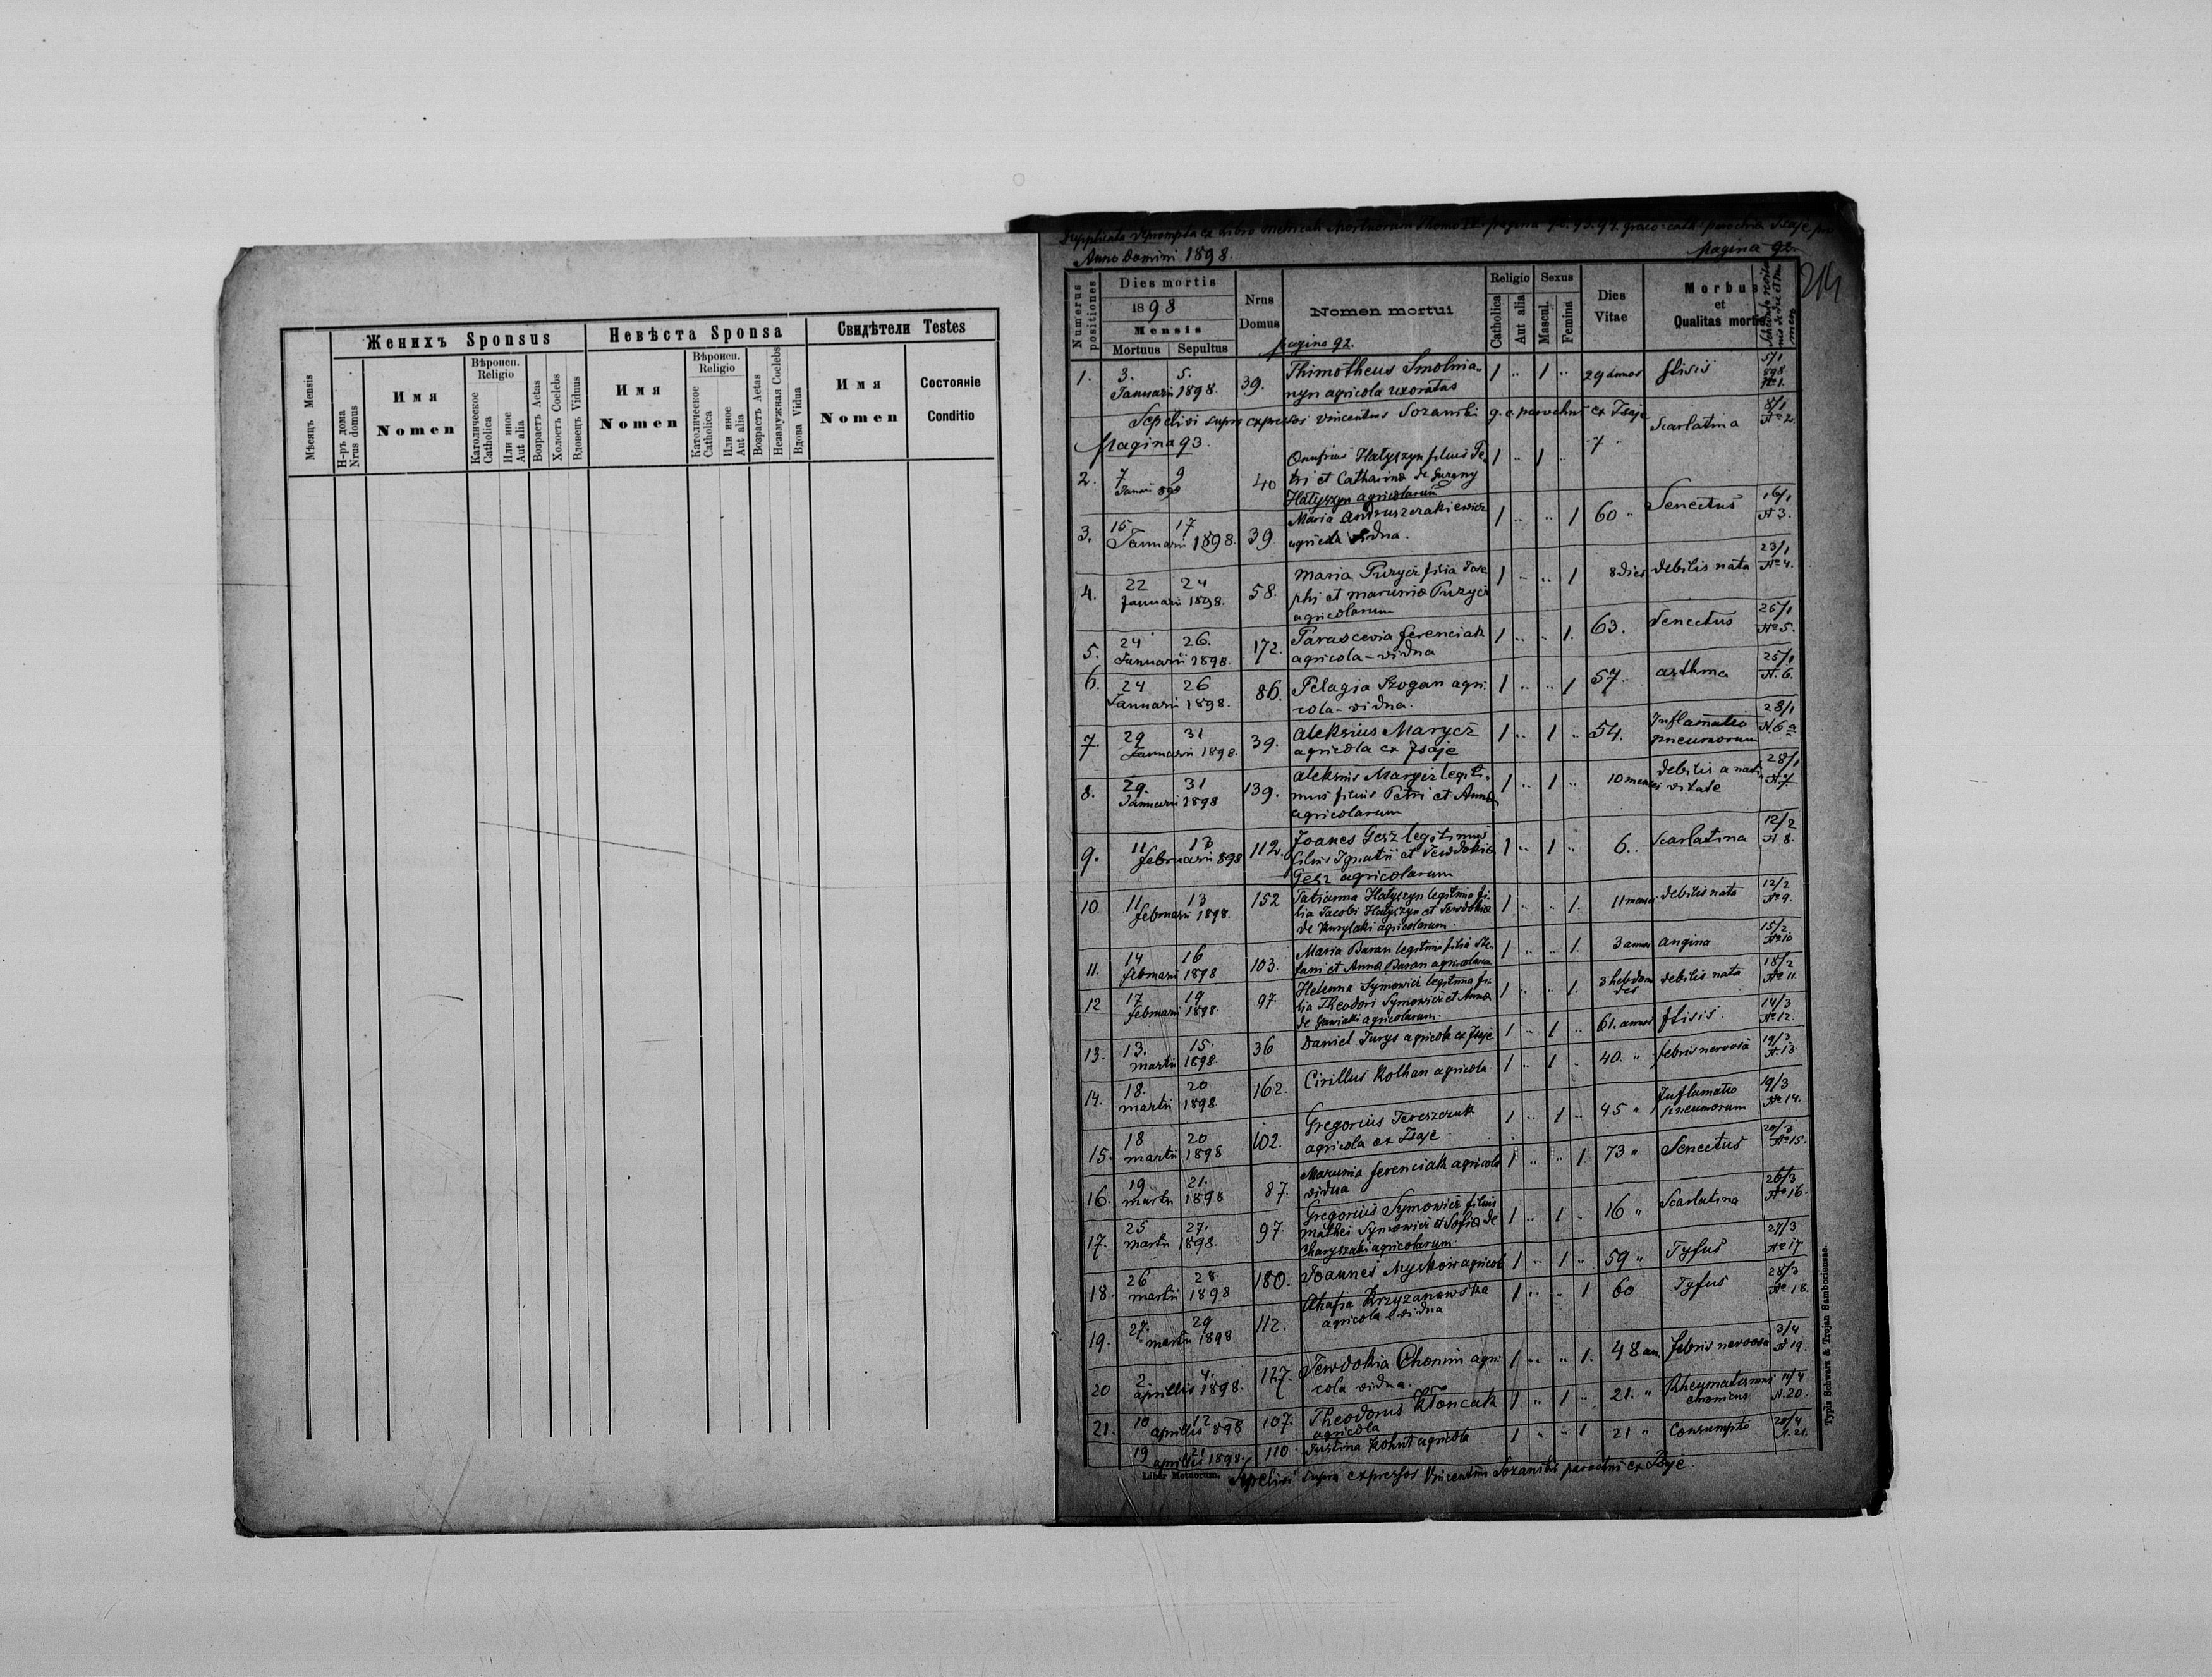 Женихъ Sponsus
Невѣста Sponsa
Свидѣтели Testes
Мѣсяцъ Mensis
Н-ръ дома
Nrus domus
Имя
Nomen
Вѣроисп.
Religio
Католическое
Catholica
Или иное
Aut alia
Возрастъ Aetas
Холостъ Coelebs
Вдовецъ Viduus
Имя
Nomen
Вѣроисп.
Religio
Католическое
Catholica
Или иное
Aut alia
Возрастъ Aetas
Незамужная Coelebs
Вдова Vidua
Имя
Nomen
Состояніе
Conditio
Duplicata deprompta ex Libro metricali Mortuorum Thomo IV. pagina 92. 93. 94. graeco-cath. parochia Isaje pro
Anno Domini 1898.
Pagina 92.
214
Numerus
positiones
Dies mortis
1898
Mensis
Mortuus Sepultus
Nrus
Domus
Nomen mortui
pagina 92.
Religio
Catholica
Aut alia
Sexus
Mascul.
Femina
Dies
Vitae
Morbus
et
Qualitas mortis
1. 3. 5. 39. Thimotheus Smolnia- 1 " 1 " 29 annos ftisis 5/1
Januarii 1898. nyn agricola uxoratus 898
№ 1.
Sepelivi supra expressos Vincentius Sozanski g. c. parochus ex Isaje
Pagina 93.
2. 7 9 40 Onufrius Hatyszyn filius Pe- 1 " 1 " 7 Scarlatina 8/1
Januarii 898 tri et Catharina de Guzeny № 2
Hatyszyn agricolarum
3. 15 17 39 Maria Andruszczakiewicz 1 " " 1 60 " Senectus 16/1
Januarii 1898. agricola vidua. № 3.
4. 22 24 58. Maria Puzycz filia Jose- 1 " " 1 8 dies debilis nata 23/1
Januarii 1898. phi et Marunia Puzycz № 4.
agricolarum
5. 24 26. 172. Parascevia Ferenciak 1 " " 1. 63. Senectus 26/1
Januarii 1898. agricola - vidua № 5.
6. 24 26 86. Pelagia Rogan agri- 1 " " 1 57. asthma 25/1
Januarii 1898. cola - vidua. № 6.
7. 29 31 39. Aleksius Marycz 1 " 1 " 54. Inflamatio 28/1
Januarii 1898. agricola ex Isaje pneumorum № 6a
8. 29. 31 139. Aleksius Marycz legiti- 1 " 1 " 10 menses debilis a nati- 28/1
Januarii 1898 mus filius Petri et Anna vitate № 7
agricolarum
9. 11 13 112. Joanes Gesz legitimus 1 " 1 " 6. Scarlatina 12/2
februarii 898 filius Ignatii et Tewdokia № 8.
Gesz agricolarum
10 11 13 152 Tatianna Hatyszyn legitima fi- 1 " " 1. 11 menses debilis nata 12/2
februarii 1898. lia Jacobi Hatyszyn et Tewdokia № 9.
de Kurylaki agricolarum.
11. 14 16 103. Maria Baran legitima filia Ste- 1 " " 1. 3 annos angina 15/2
februarii 1898 fani et Anna Baran agricolarum № 10
12 17 19 97. Helenna Symowicz legitima fi- 1 " " 1. 3 hebdoma debilis nata 18/2
februarii 1898. lia Theodori Symowicz et Anna des № 11.
de Gawialki agricolarum.
13. 13. 15. 36 Daniel Jurys agricola ex Isaje 1 " 1 " 61. annos ftisis. 14/3
martii 1898. № 12.
14. 18. 20 162. Cirillus Kolhan agricola 1 " 1 " 40. " febris nervosa 19/3
martii 1898. № 13
15. 18 20 102. Gregorius Tereszczuk 1 " 1 " 45 " Inflamatio 19/3
martii 1898 agricola ex Isaje pneumorum № 14.
16. 19 21. 87. Marunia Ferenciak agricola 1 " " 1. 73 " Senectus 20/3
martii 1898 vidua № 15.
17. 25 27. 97. Gregorius Symowicz filius 1 " 1 " 16 " Scarlatina 26/3
martii 1898. Mathei Symowicz et Sofia de № 16.
Charyszaki agricolarum.
18. 26 28. 180. Joannes Myskow agricola 1 " 1 " 59 " Tyfus 27/3
martii 1898 № 17
19. 27. 29 112. Ahafia Krzyzanowska 1 " " 1 60 Tyfus 28/3
martii 1898 agricola vidua № 18.
20 2. 4. 127. Tewdokia Chomin agri- 1 " " 1. 48 an. febris nervosa 3/4
aprillis 1898. cola vidua. № 19.
21. 10 12 107. Theodorus Klonczak 1 " 1 " 21. " Rheumatismus 11/4
aprillis 898 agricola chronicus № 20.
19 21 110 Justina Kohut agricola 1 " " 1 21 " Consumptio 20/4
aprillis 1898. № 21.
Liber Motuorum.
Sepelivi supra expressos Vincentius Sozanski parochus ex Isaje.
Typis Schwarz & Trojan Samboriensae.